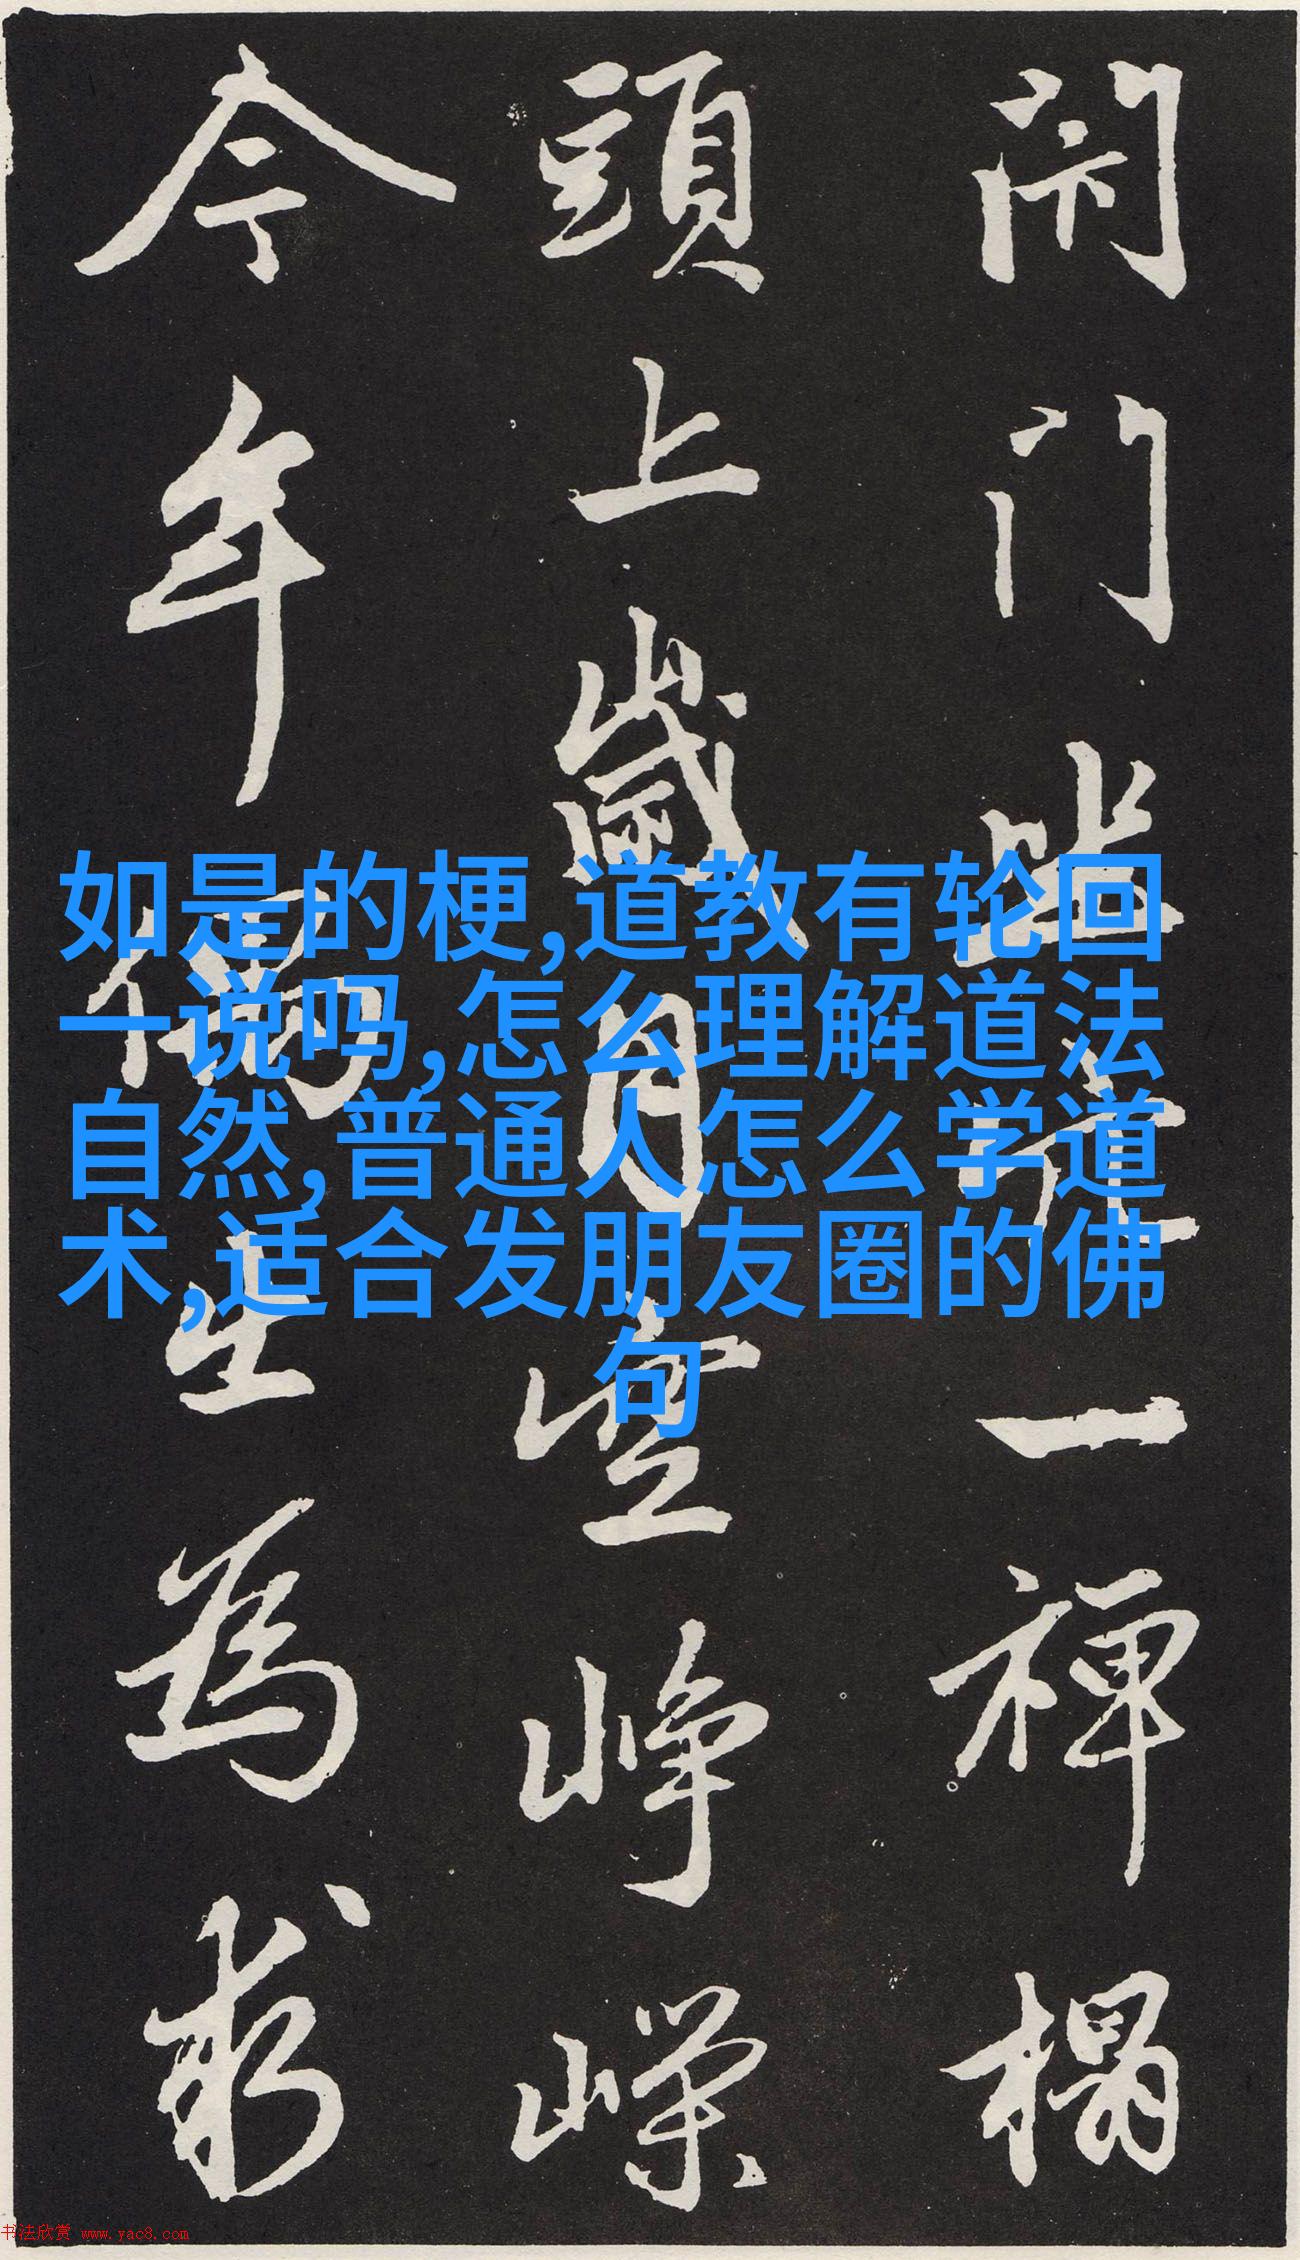 閇门一禪榻
頭上歲月空崢嶸
今年偶出為求
如是的梗,道教有轮回
一说吗,怎么理解道法
自然,普通人怎么学道
术,适合发朋友圈的佛
句
书法欣赏 www.yac8.com